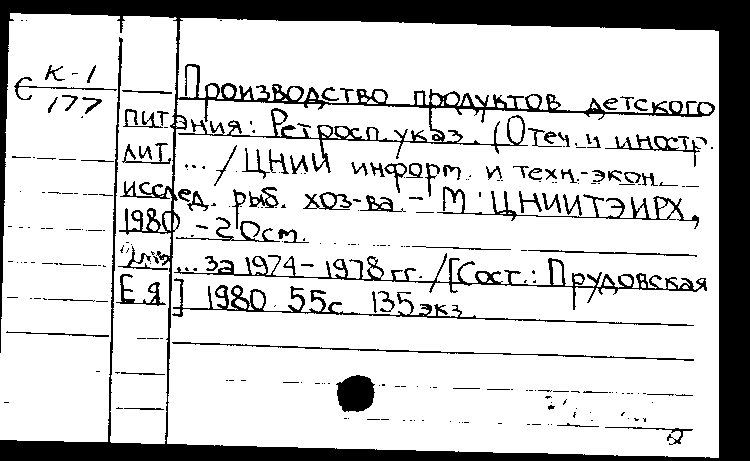 С К-1
177
Производство продуктов детского
питания: Ретросп. указ. (Отеч. и иностр.
лит. ... / ЦНИИ информ. и техн.-экон.
исслед. рыб. хоз-ва. - М.: ЦНИИТЭИРХ,
1980. - 20см.
... за 1974-1978 гг. / [Сост.: Прудовская
Е.Я] 1980. 55с. 135экз.